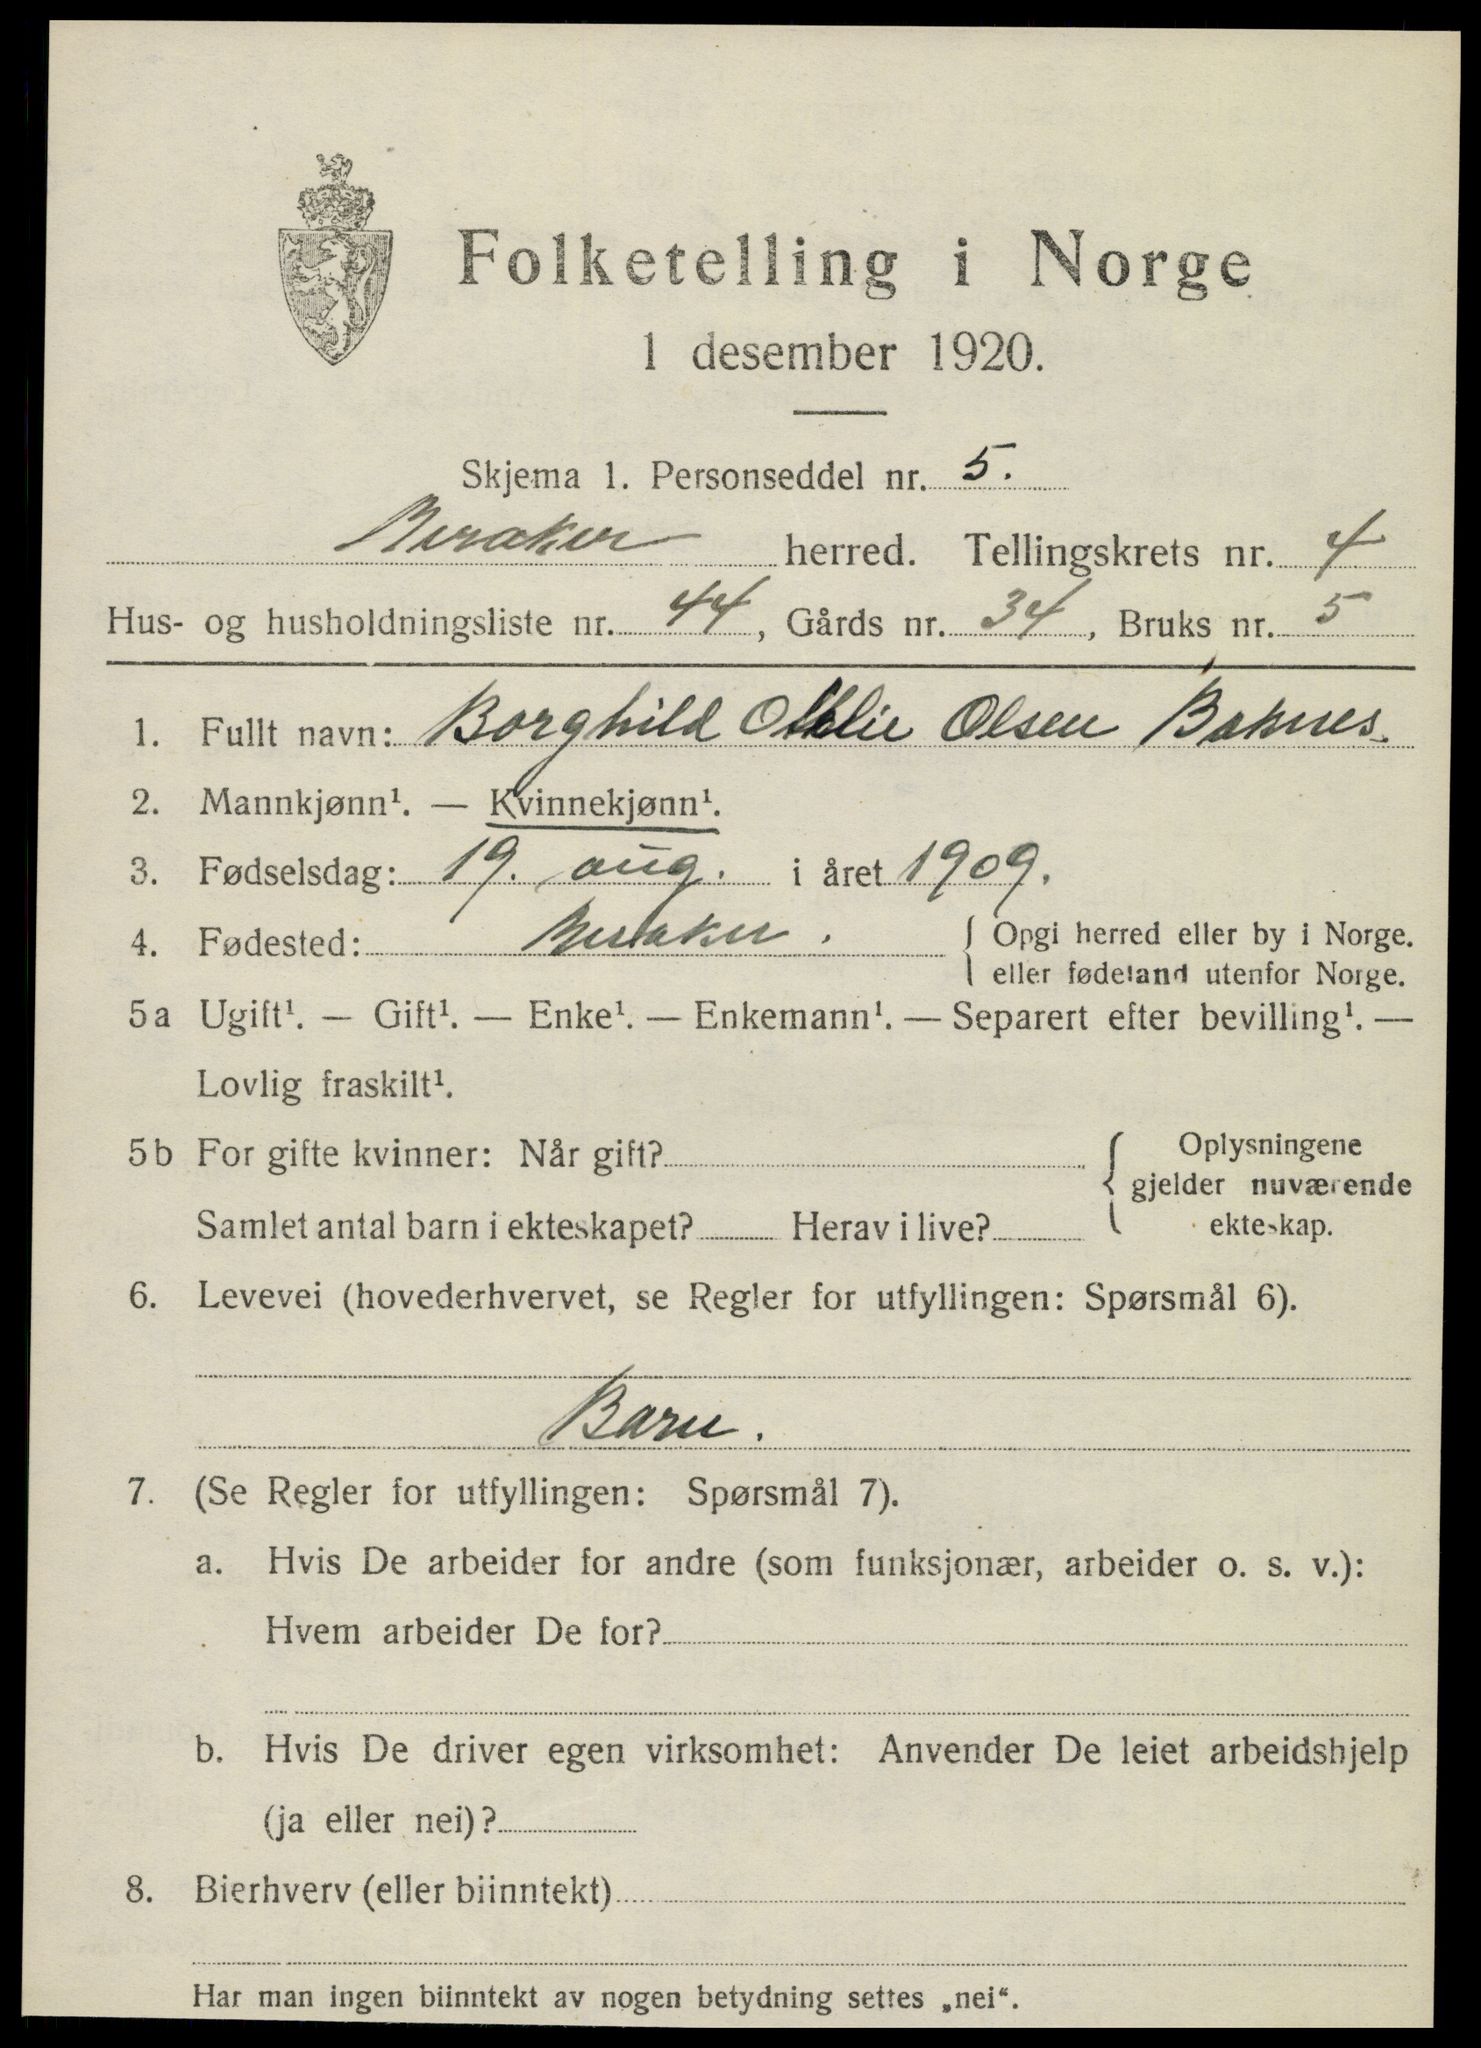 Folketelling i Norge
1 desember 1920.
Skjema 1. Personseddel nr. 5.
Meraker herred. Tellingskrets nr. 4
Hus- og husholdningsliste nr. 44, Gårds nr. 34, Bruks nr. 5
1. Fullt navn: Borghild Otelie Olsen Baknes.
2. Mannkjønn¹. — Kvinnekjønn¹.
3. Fødselsdag: 19. aug. i året 1909.
4. Fødested: Meraker. { Opgi herred eller by i Norge.
eller fødeland utenfor Norge.
5a Ugift¹. — Gift¹. — Enke¹. — Enkemann¹. — Separert efter bevilling¹. —
Lovlig fraskilt¹.
5b For gifte kvinner: Når gift? { Oplysningene
gjelder nuværende
Samlet antal barn i ekteskapet? Herav i live? ekteskap.
6. Levevei (hovederhvervet, se Regler for utfyllingen: Spørsmål 6).
Barn.
7. (Se Regler for utfyllingen: Spørsmål 7).
a. Hvis De arbeider for andre (som funksjonær, arbeider o. s. v.):
Hvem arbeider De for?
b. Hvis De driver egen virksomhet: Anvender De leiet arbeidshjelp
(ja eller nei)?
8. Bierhverv (eller biinntekt)
Har man ingen biinntekt av nogen betydning settes „nei“.